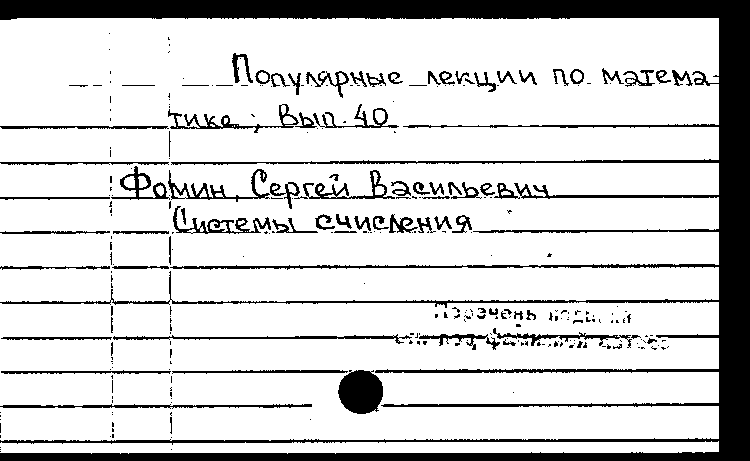 Популярные лекции по матема-
тике; Вып. 40
Фомин, Сергей Васильевич
Системы счисления
Перечень изданий
см. под фамилией автора